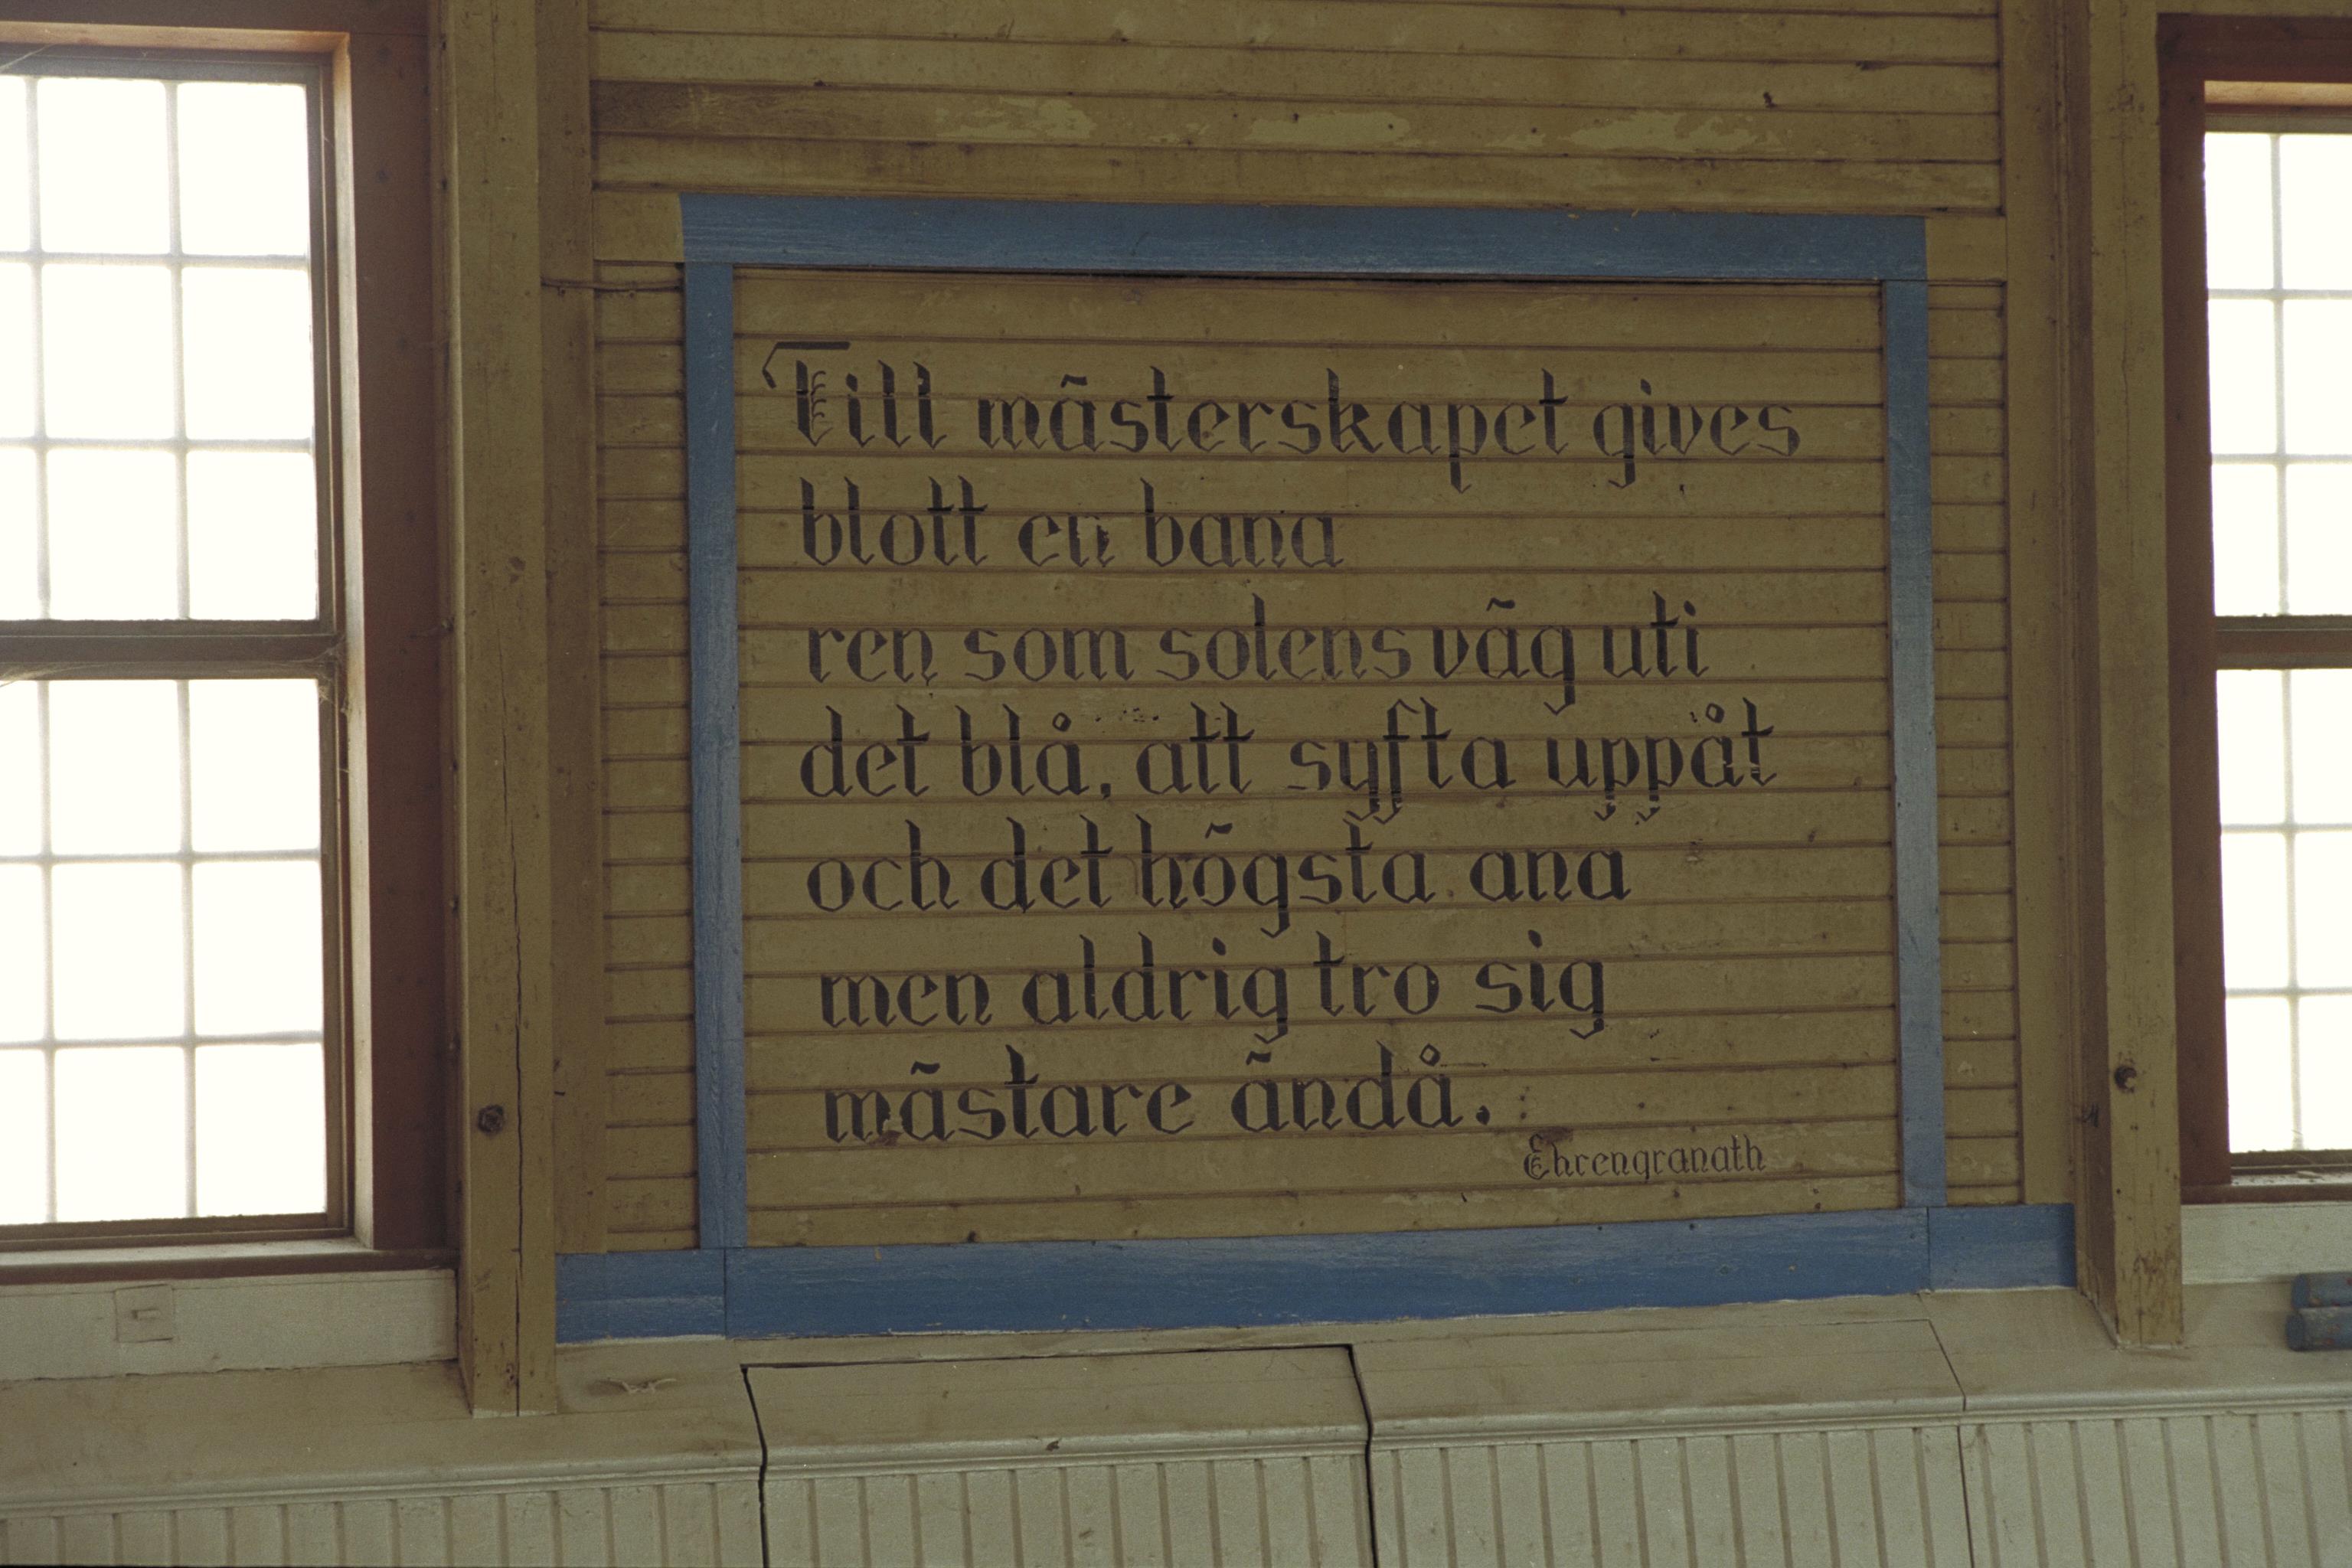 Till mästerskapet gives
blott en bana
ren som solens väg uti
det blå, att syfta uppåt
och det högsta ana
men aldrig tro sig
mästare ändå.
Ehrengranath